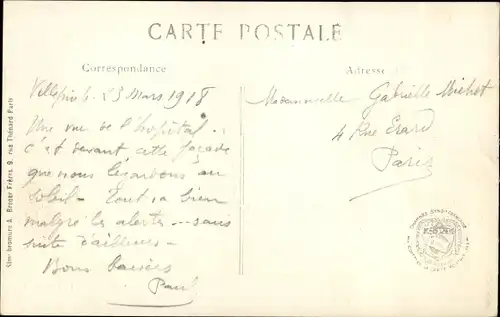 CARTE POSTALE
Correspondance
Adresse
Villepinte 23 mars 1918
Une vue de l'hopital.
c'est devant cette façade
que nous lézardons au
soleil - Tout va bien
malgré les alertes - sans
suite d'ailleurs -
Bons baisers
Paul
Mademoiselle Gabrielle Michot
4 Rue Erard
Paris
A. Breger Frères, 9, rue Thénard Paris